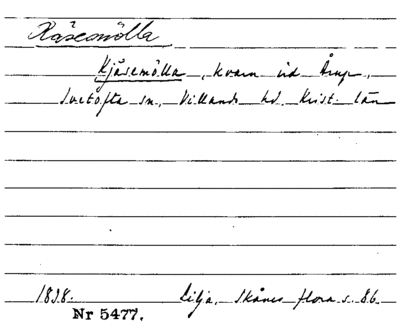 Kåsemölla
Kjåsemölla, kvarn vid Årup,
Ivetofta sn, Villands hd. Krist. län
1838. Lilja, Skånes flora s. 86
Nr 5477.